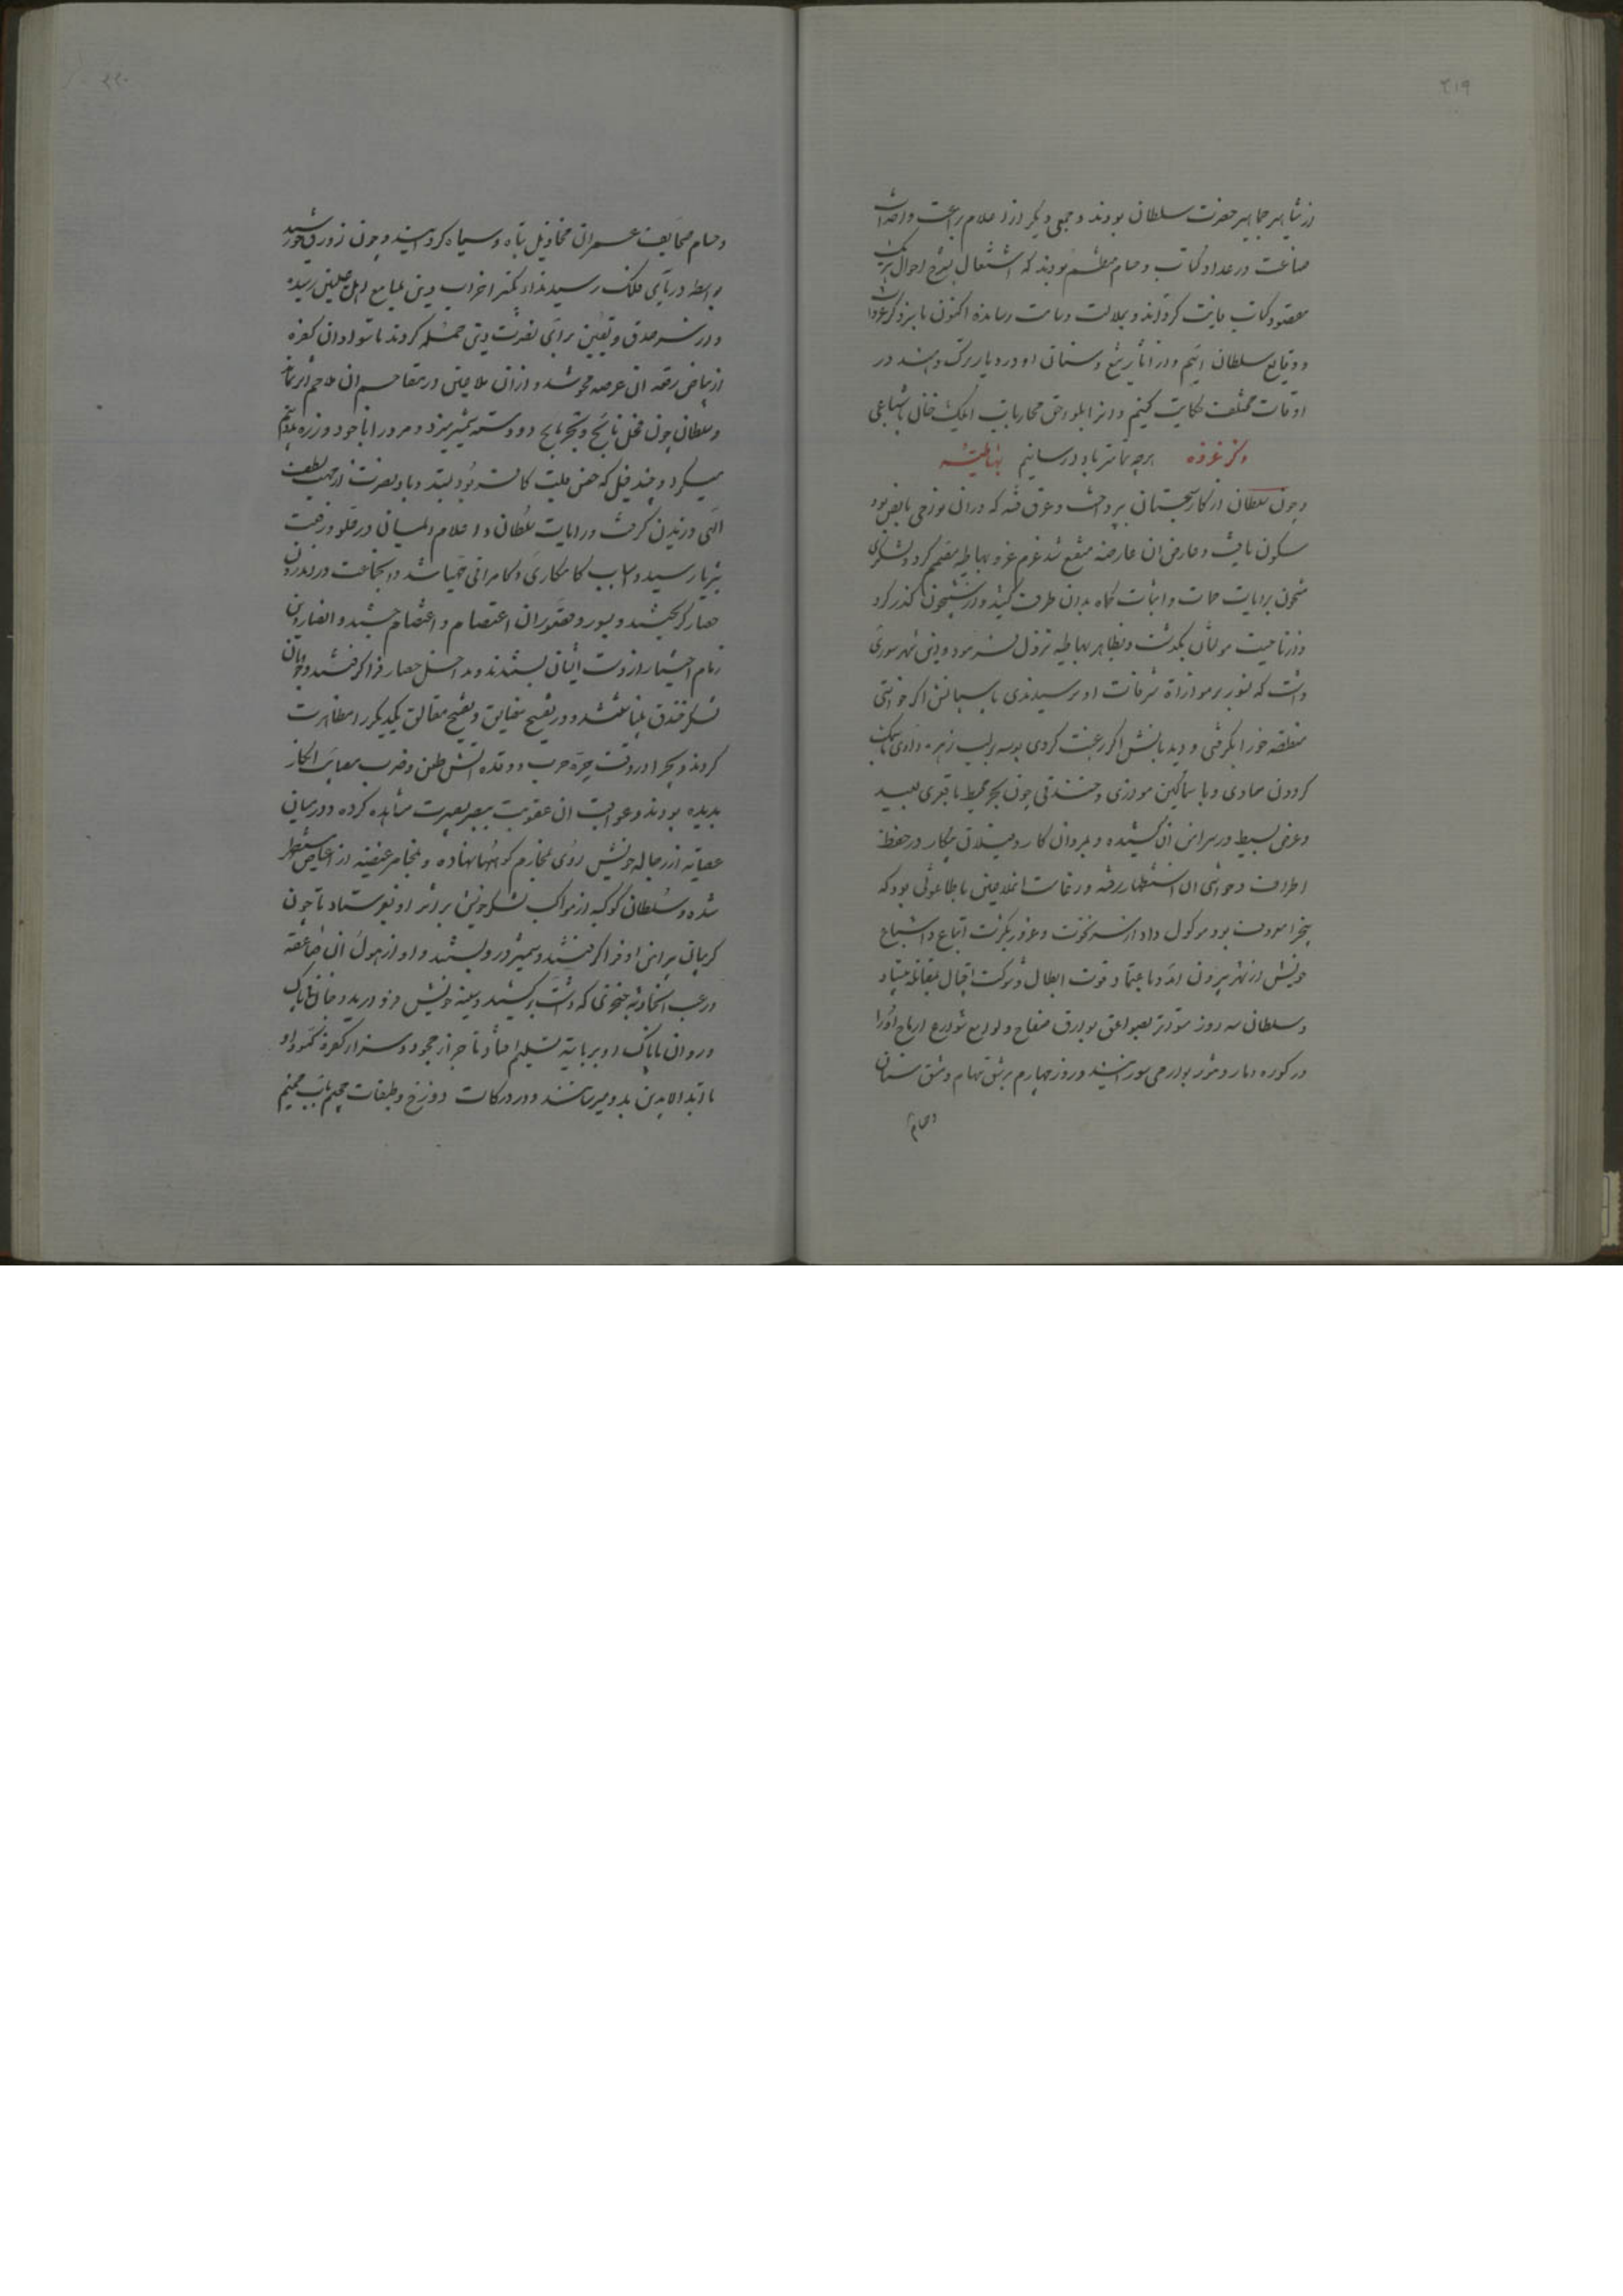 ۲۱۹
از مشاهیر جماهیر حضرت سلطان بودند و جمعی دیگر از اعلام براعت و
صناعت در عداد کتاب و حسام منتظم بودند که اشتغال بشرح احوال هریک
مقصود کتاب فایت کرداند و بملالت و سامت رساند اکنون با سر ذکر غزوات
و وقایع سلطان آییم و از آثار تیغ و سنان او در دیار ترک و هند در
اوقات مختلف حکایت کنیم و از ابلو حق محاربات ایلک خان باشباعی
ذکر غزوه هرچه تمامتر باد رسانیم بهاطیه
و چون سلطان از کار سجستان بپرداخت و عرق فتنه که در آن نواحی نابض بود
سکون یافت و عارض آن عارضه منقشع شد عزم غزو بهاطیه مصمم کرد و لشکری
مشحون برایات حمات و اثبات کماه بدان طرف کشید و از سیحون گذر کرد
و از ناحیت مولتان بگذشت و بظاهر بهاطیه نزول فرمود و این شهر سوری
داشت که نسور بر موازاة شرفات او نرسیدندی پاسبانش اکر خواستی
منطقه جوزا بگرفتی و دیدبانش اکر رغبت کردی بوسه بر لب زهره دادی با سمک
کردون محاذی و با سماکین موازی و خندقی چون بحر محیط با قعری بعید
و عرض بسیط در پیرامن آن کشیده و بمردان کار و فیلان پیکار در حفظ
اطراف و حواشی آن استظهار رفته و زعامت آن ملاعین با طاغوتی بود که
ببجرا معروف بود مرکول داد از سر نخوت و غرور بکثرت اتباع و اشیاع
خویش از شهر بیرون آمد و باعتماد قوت ابطال و شوکت اقیال بمقاتله بیستاد
و سلطان سه روز متواتر بصواعق بوارق صفاح و لوامع شوارع ارماح او را
در کوره دمار و تنور بوار می سوزانید و روز چهارم برشق سهام و مشق سنان
و حسام
۲۲۰
و حسام صحایف عمر آن مخاذیل تباه و سیاه کردانیدند و چون زورق خورشید
بواسطه دریای فلک رسید نداء تکبیر احزاب دین بمسامع اهل علیین رسید
و از سر صدق و یقین برای نصرت دین حمله کردند تا سواد آن کفره
از بیاض رقعه آن عرصه محو شد و از آن ملاعین در مقاحم آن ملاحم اثر نماند
و سلطان چون فحل و بحر مایج دو دسته شمشیر میزد و مرد را با خود و زره بدو نیم
میکرد و چند فیل که حصن قلب کافر بود بستد و باد نصرت از مهب لطف
الهی وزیدن گرفت و رایات سلطان و اعلام ایمان در علو و رفعت
بثریا رسید و اسباب کامکاری و کامرانی مهیا شد و آن جماعت در اندرون
حصار گریختند و بسور و قصور آن اعتصام و اعتضاد جستند و انصار دین
زمام اختیار از دست ایشان بستدند و مداخل حصار فرا گرفتند و جوانان
لشکر خندق بینباشتند و در توسیع مضایق و تفتیح مغالق یکدیگر را مظاهرت
کردند و بجرا در وقت حره حرب و وقده آتش طعن و ضرب معاینه الکار
بدیده بودند و عواقب آن عقوبت ببصر بصیرت مشاهده کرده و در میان
عصابه از رجاله خویش روی بمخارم کوهها نهاده و بمخاصر غیضه از اغیاض مستظهر
شده و سلطان کوکبه از مواکب لشکر خویش بر اثر او بفرستاد تا چون
گریبان پیرامن او فرا گرفتند و شمشیر در و بستند و او از هول آن صاعقه
و رعب آن حادثه خنجری که داشت برکشید و سینه خویش فرو درید و جان ناپاک
و روان ناپاک او بزبانیه تسلیم افتاد تا جزاء جحود و سزاء کفر و کنود او
تا ابد الابدین بدو میرسانند و در درکات دوزخ و طبقات جحیم